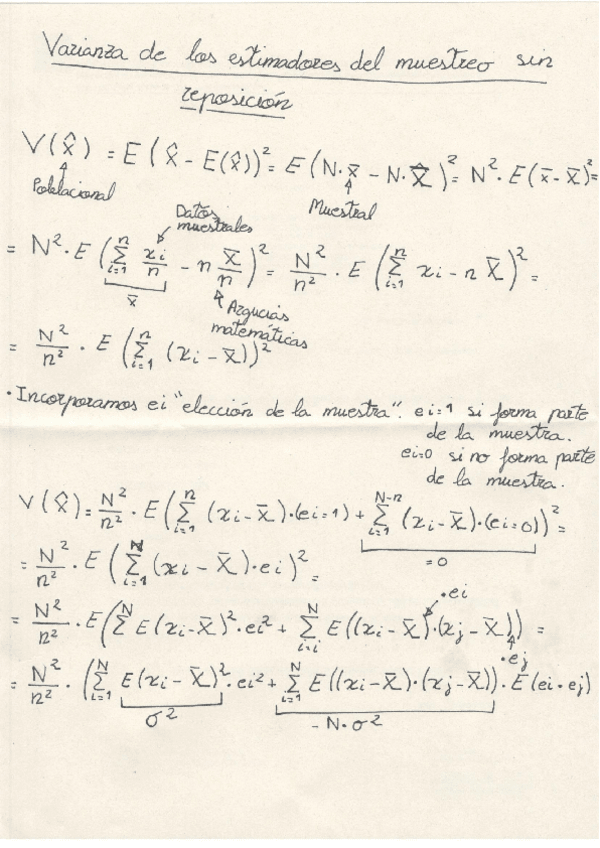 Varianza de los estimadores del muestreo sin
reposición
V(x̂) = E(x̂ - E(x̂))² = E(N·x̄ - N·X̄)² = N²·E(x̄ - X̄)² =
Poblacional
Muestral
Datos
muestrales
= N²·E(∑_{i=1}^{n} xi/n - n X̄/n)² = N²/n² · E(∑_{i=1}^{n} xi - n X̄)² =
x̄
Argucias
matemáticas
= N²/n² · E(∑_{i=1}^{n} (xi - X̄))²
· Incorporamos ei "elección de la muestra". ei=1 si forma parte
de la muestra.
ei=0 si no forma parte
de la muestra.
V(x̂) = N²/n² · E(∑_{i=1}^{n} (xi - X̄)·(ei=1) + ∑_{i=1}^{N-n} (xi - X̄)·(ei=0))² =
=0
= N²/n² · E(∑_{i=1}^{N} (xi - X̄)·ei)² =
·ei
= N²/n² · E(∑^{N} E(xi - X̄)²·ei² + ∑_{i=i}^{N} E((xi - X̄)·(xj - X̄))) =
·ej
= N²/n² · (∑_{i=1}^{N} E(xi - X̄)²·ei² + ∑_{i=1}^{N} E((xi - X̄)·(xj - X̄))·E(ei·ej)
σ²
- N·σ²